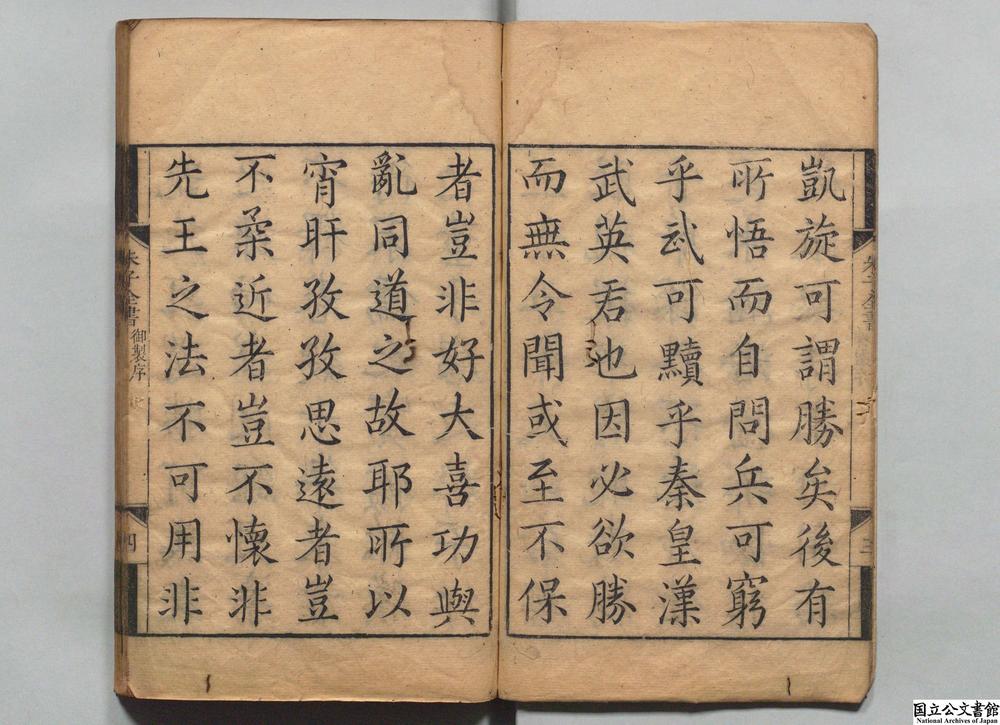 凱旋可謂勝矣後有
所悟而自問兵可窮
乎武可黷乎秦皇漢
武英君也因必欲勝
而無令聞或至不保
者豈非好大喜功與
亂同道之故耶所以
宵旰孜孜思遠者豈
不柔近者豈不懷非
先王之法不可用非
朱子全書 御製序
四
国立公文書館
National Archives of Japan